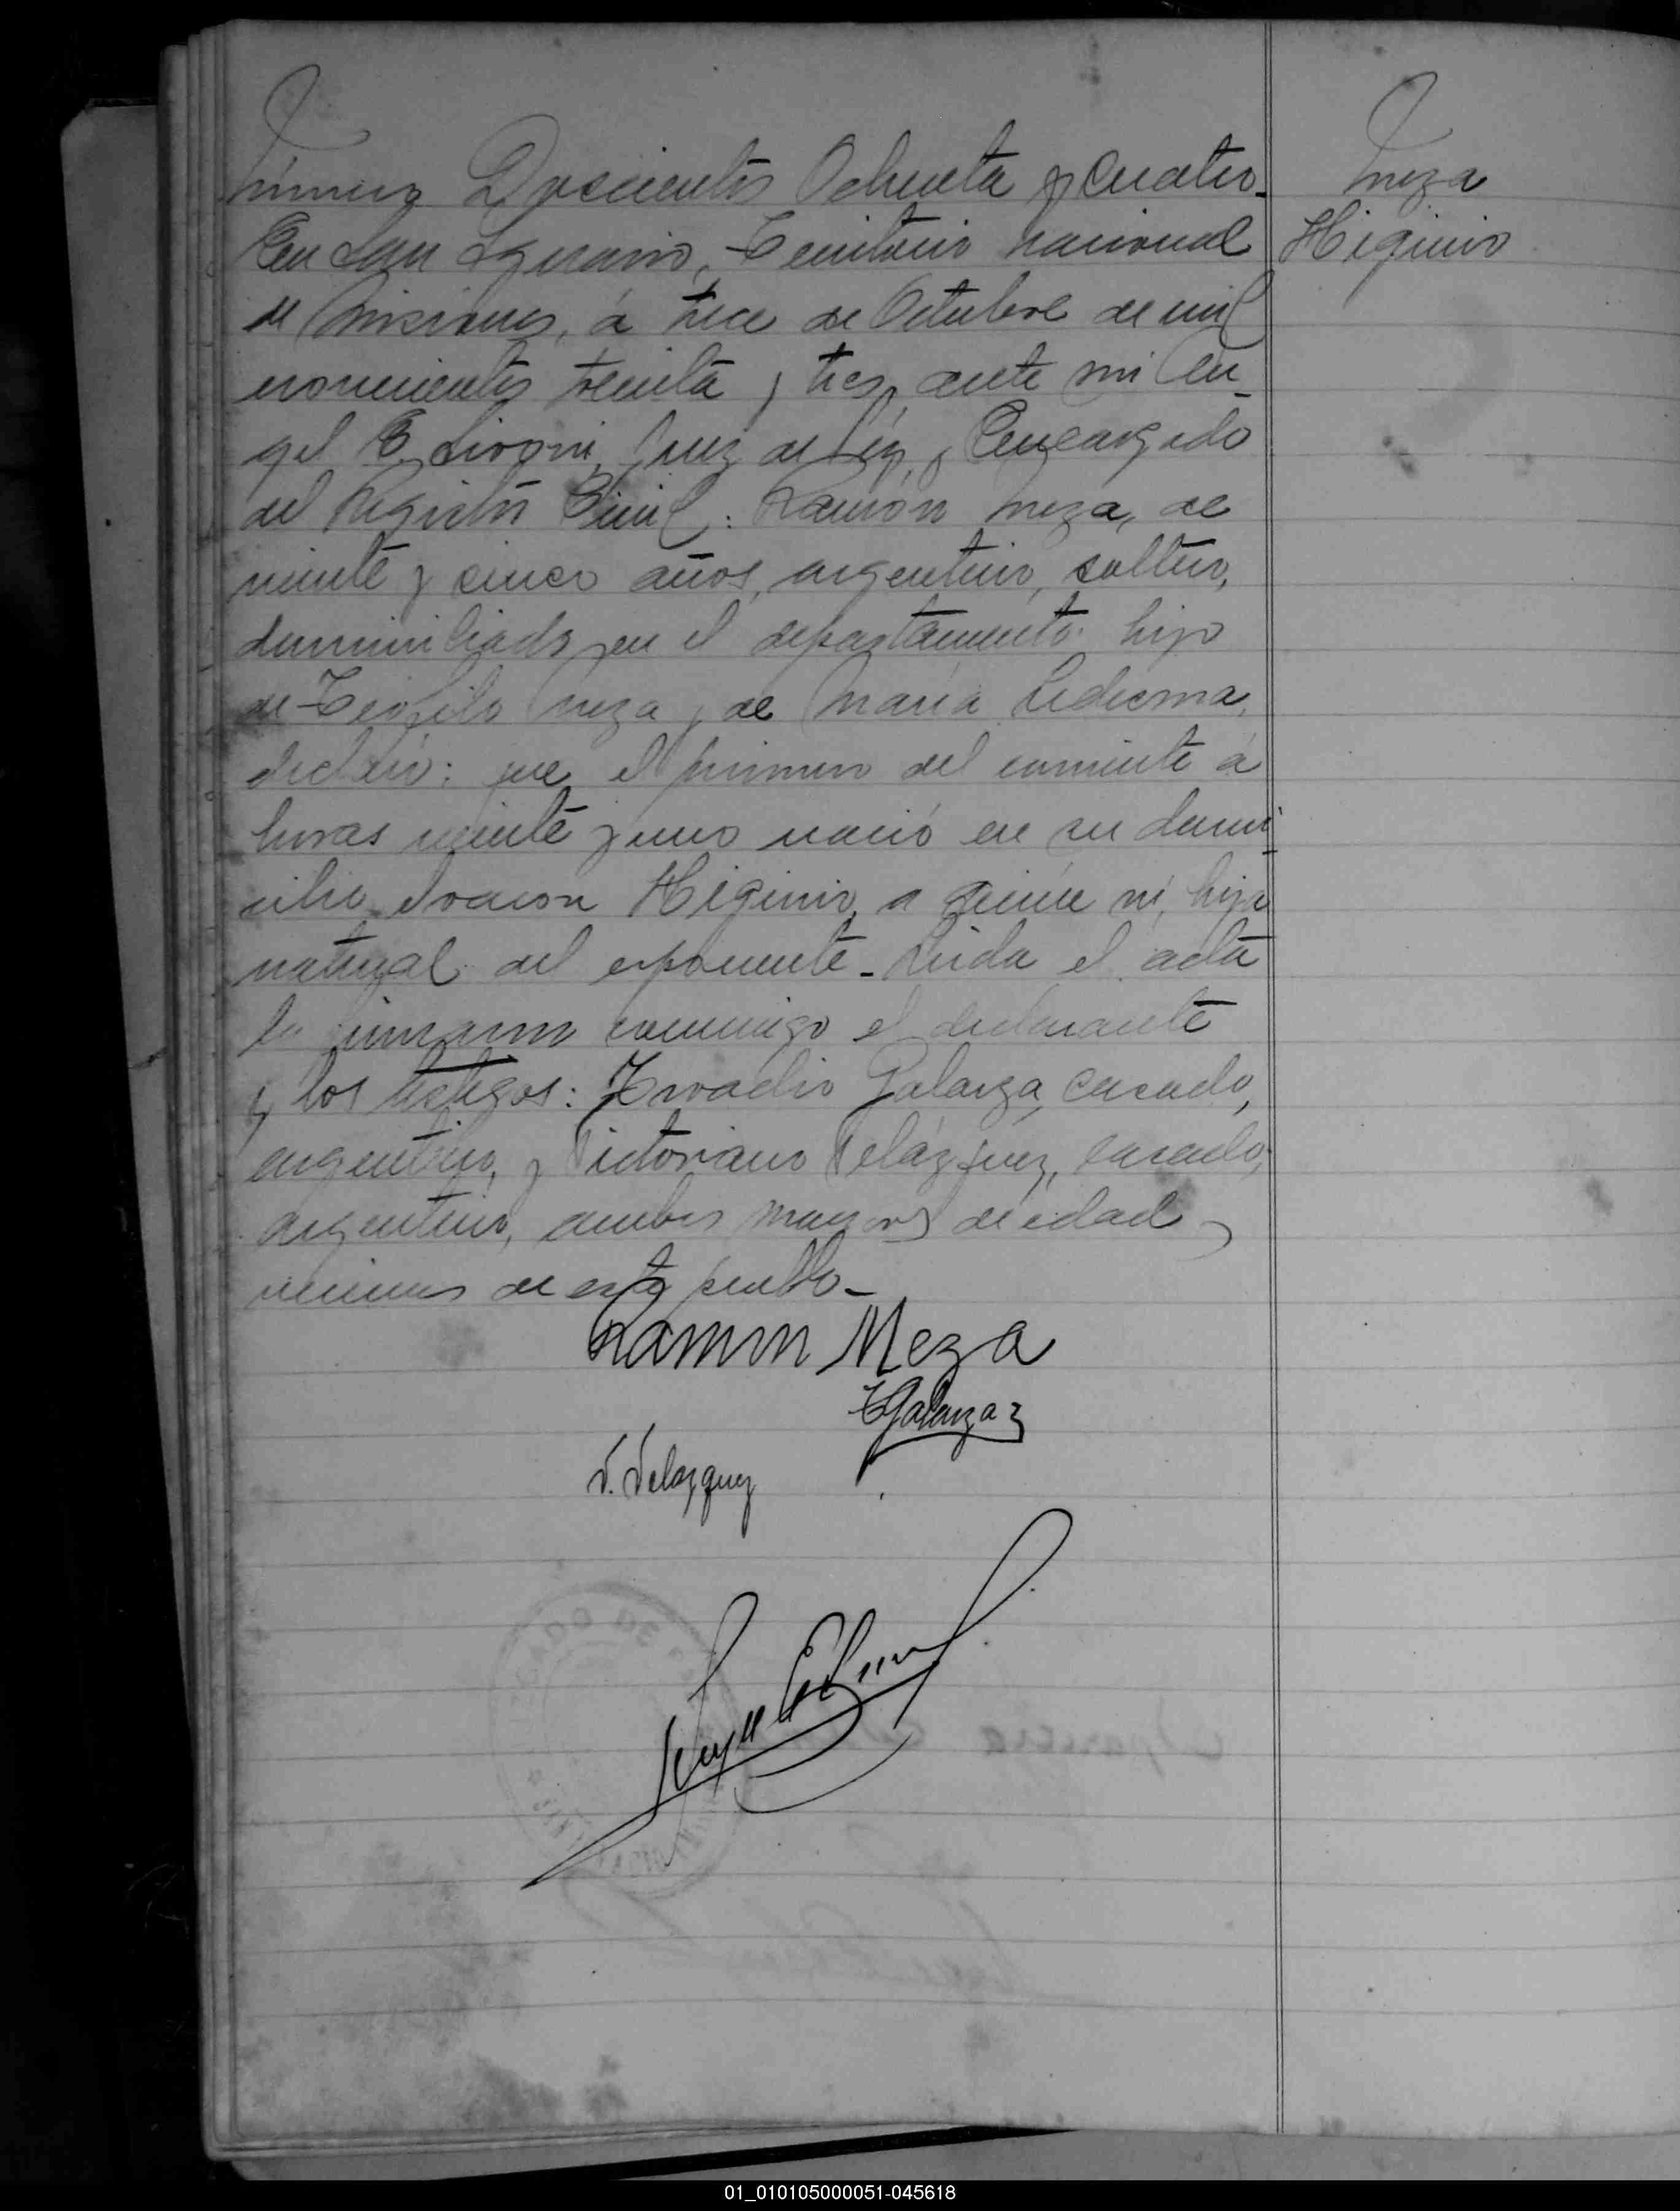 Número Doscientos Ochenta y cuatro-
En San Ignacio, Territorio nacional
de Misiones, á trece de Octubre de mil
novecientos treinta y tres, ante mi An-
gel E. Juez de Paz y Encargado
del Registro Civil: Ramón Meza, de
veinte y cinco años, argentino, soltero,
domiciliado en el departamento hijo
de Teofilo Meza y de María Ledesma,
declaró: que el primero del corriente á
horas veinte y uno nació en su domi-
cilio el varon Higinio, a quien ví, hijo
natural del esponente- Leida el acta
la firmaron conmigo el declarante
y los testigos: Galarza, casado,
argentino, y Victoriano Velázquez, casado,
argentino, ambos mayores de edad y
vecinos de este pueblo-
Ramon Meza
TGalarza
V. Velazquez
Meza
Higinio
01_010105000051-045618